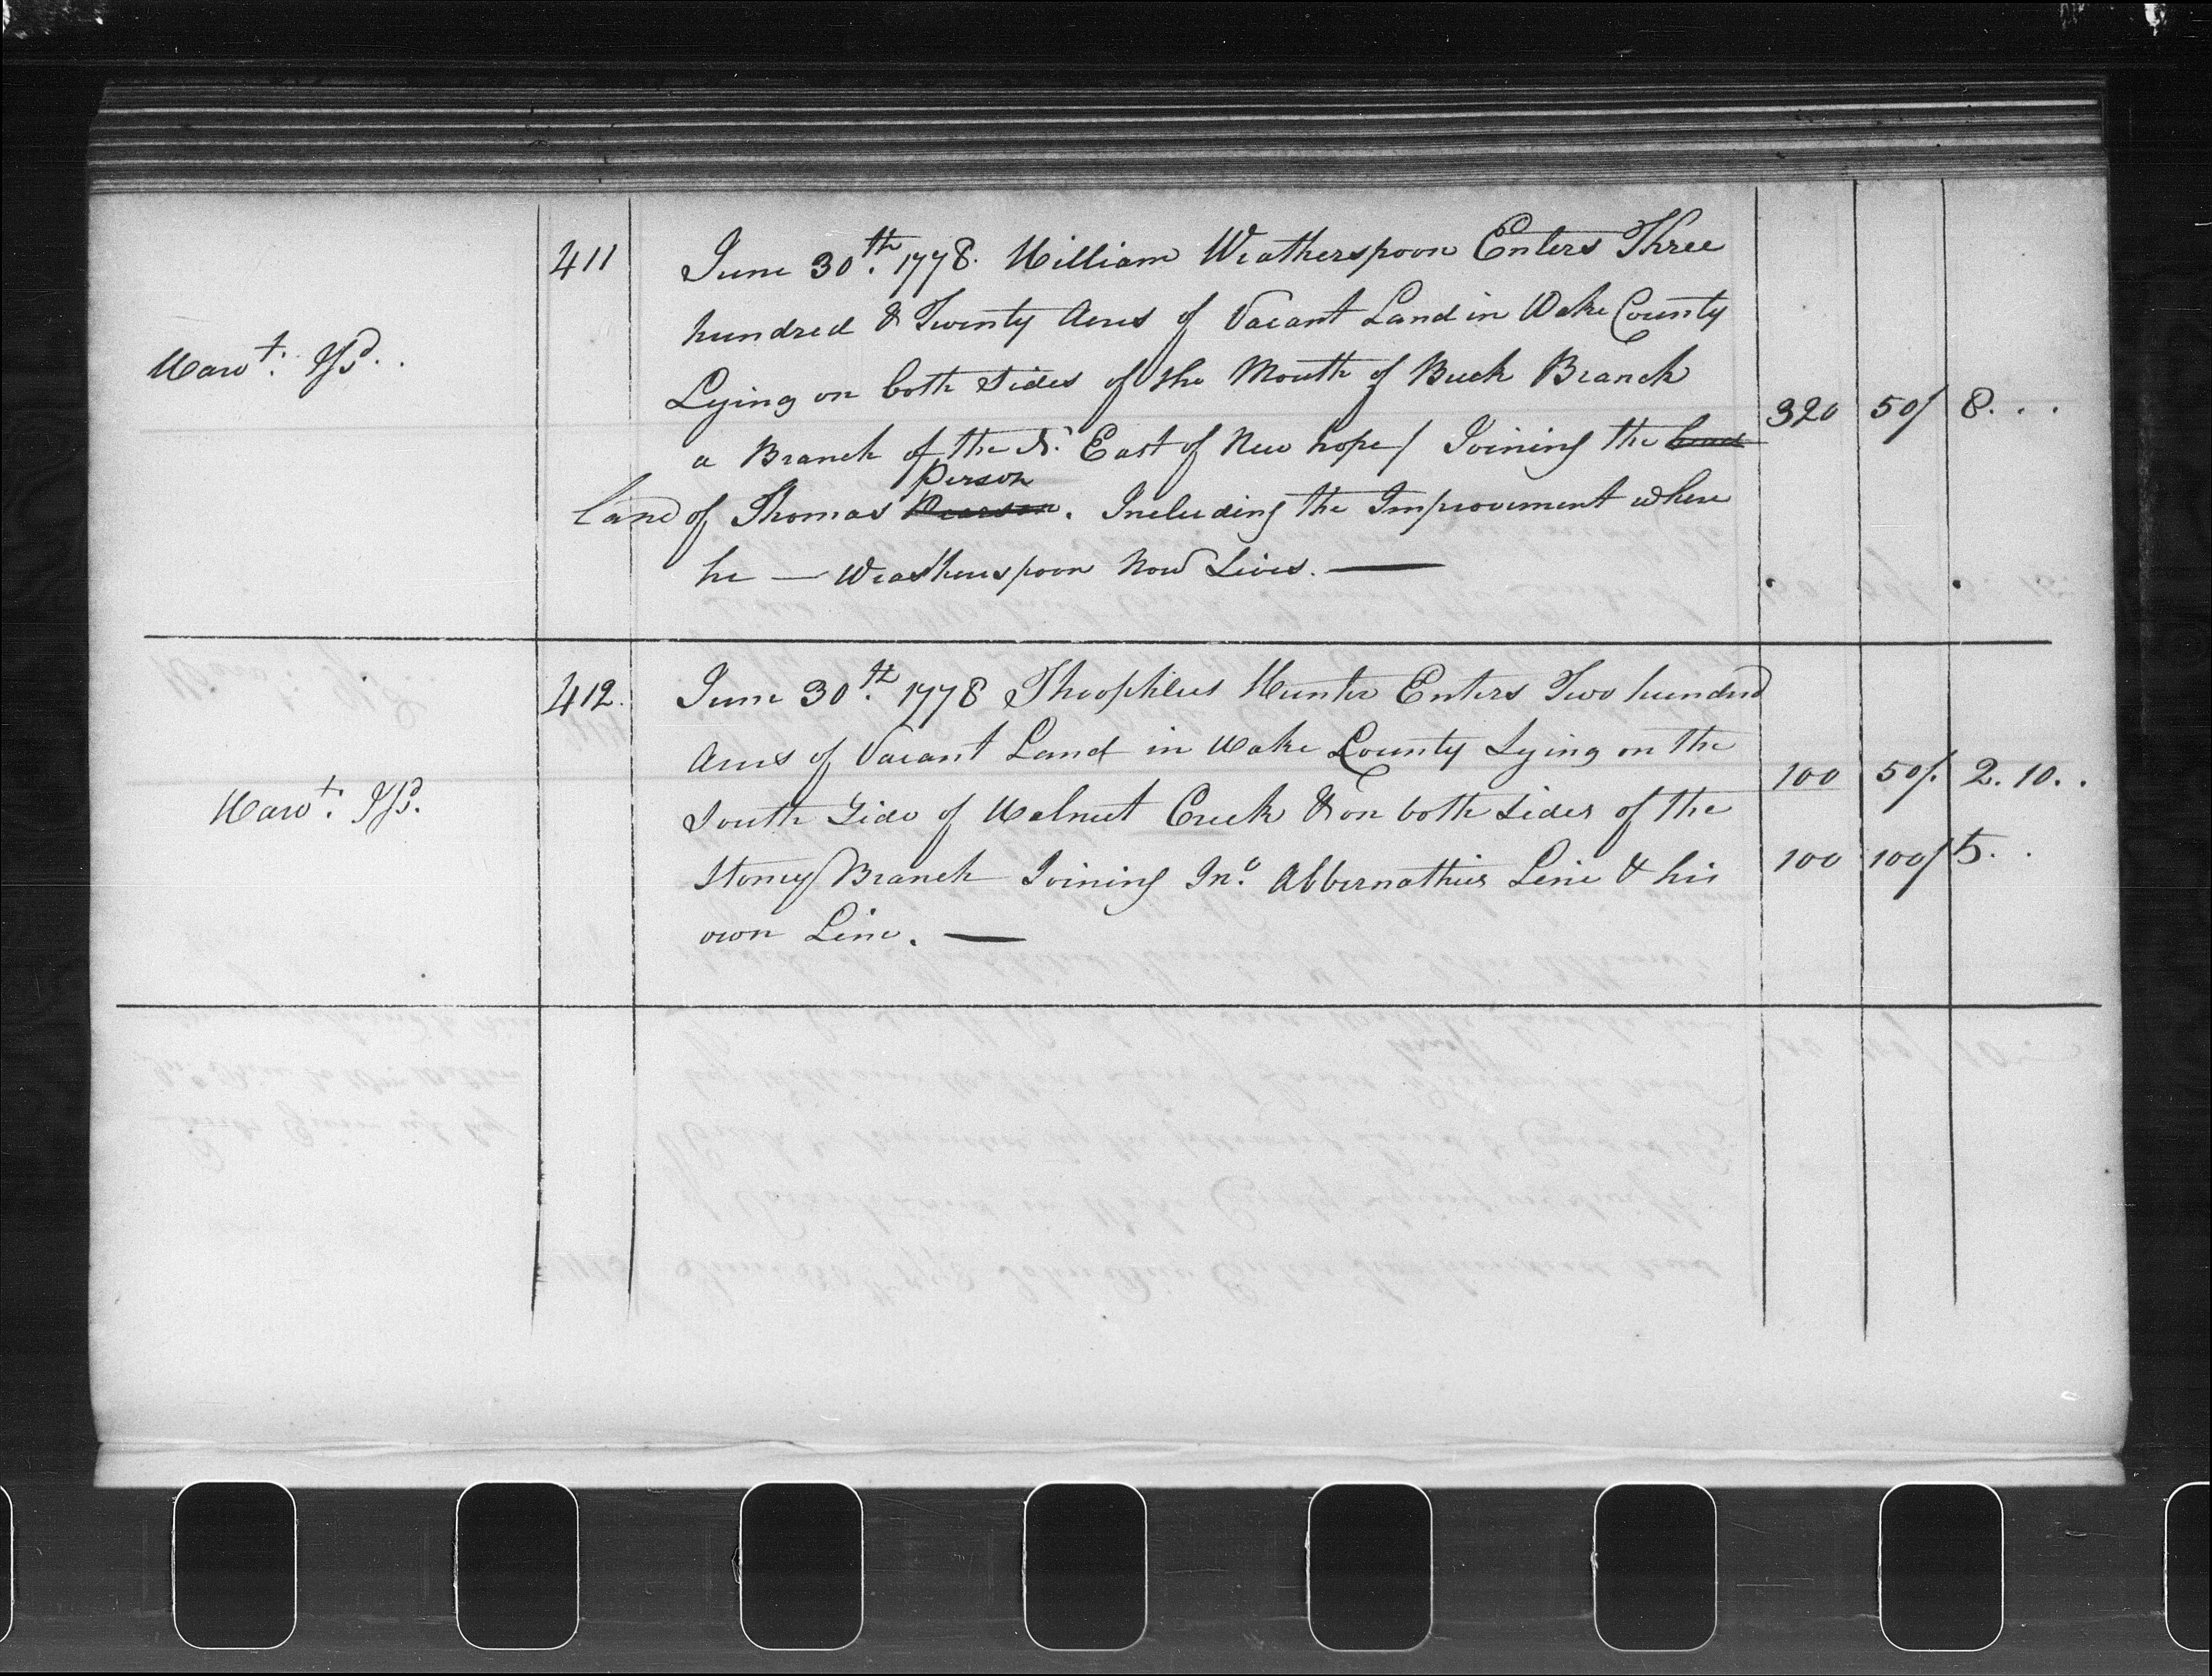 411 June 30th. 1778. William Weatherspoon Enters Three
hundred & Twenty Acres of Vacant Land in Wake County
Warrt. Issd..
Lying on both Sides of the Mouth of Buck Branch
320 50/ 8...
a Branch of the N. East of New hope/ Joining the
Person
land of Thomas Pearson. Including the Improvement where
he — Weatherspoon Now Lives. —
412. June 30th. 1778 Theophilus Hunter Enters Two hundred
Acres of Vacant Land in Wake County Lying on the
100 50/. 2.10..
Warrt. Issd.
South Side of Walnut Creek & on both Sides of the
Stoney Branch Joining Jno. Abbernathies Line & his
100 100/ 5..
own Line. —